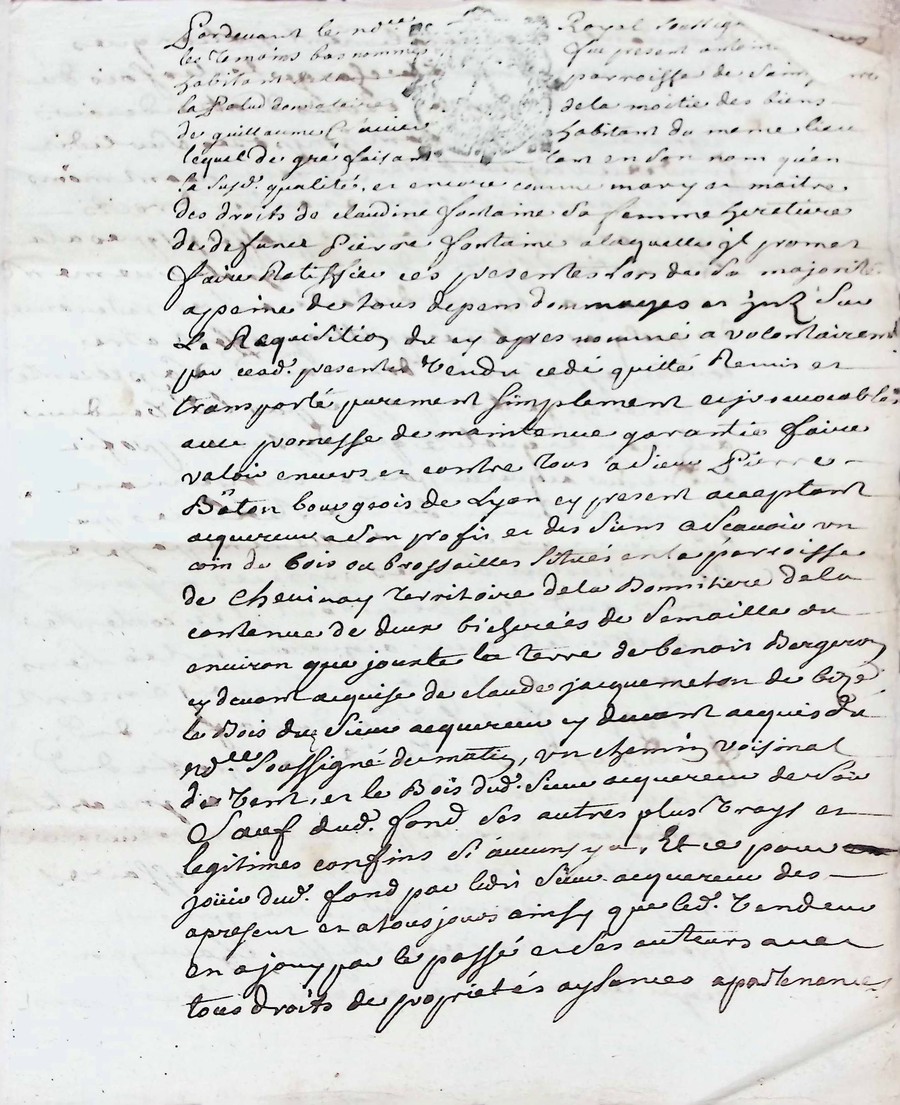 Pardevant le no.re Royal soussigné
les temoins bas nommés fut present antoine
habitant de la parroisse de Saint
la Palud donataire de la moitie des biens
de guillaume habitant du meme lieu
lequel de gré faisant tant en son nom qu'en
la susd. qualité, et encore comme mary et maitre
des droits de claudine fontaine sa femme heretiere
de defunct Pierre fontaine a laquelle jl promet
faire Ratiffier ces presentes lors de sa majorité
a peine de tous depens dommages et Sur
La Requisition du cy apres nommé a volontairem.t
par cesd. presentes Vendu cedé quitté Remis et
transporté purement simplement et jrevocablem.t
avec promesse de maintenue garantie faire
valoir envers et contre tous a sieur Pierre
Bâton bourgeois de Lyon cy present acceptant
acquereur a son profit et des siens a scavoir un
coin de bois ou brossailles situés en la parroisse
de Chevinay territoire de la Bonnitiere de la
contenue de deux bicherées de semaille ou
environ que jouxte la terre de benoit Bergeron
cy devant acquise de claude jacquemeton de bize
le Bois du sieur acquereur cy devant acquis du
no.re soussigné du matin, un chemin voisinal
de vent, et le Bois dud. sieur acquereur de soir
Sauf dud. fond ses autres plus vrays et
legitimes confins si aucuns y a, Et ce pour
joüir dud. fond par ledit sieur acquereur des
apresent et a tousjours ainsy que led. Vendeur
en a jouy par le passé et ses auteurs avec
tous droits de proprietés aysances apartenances